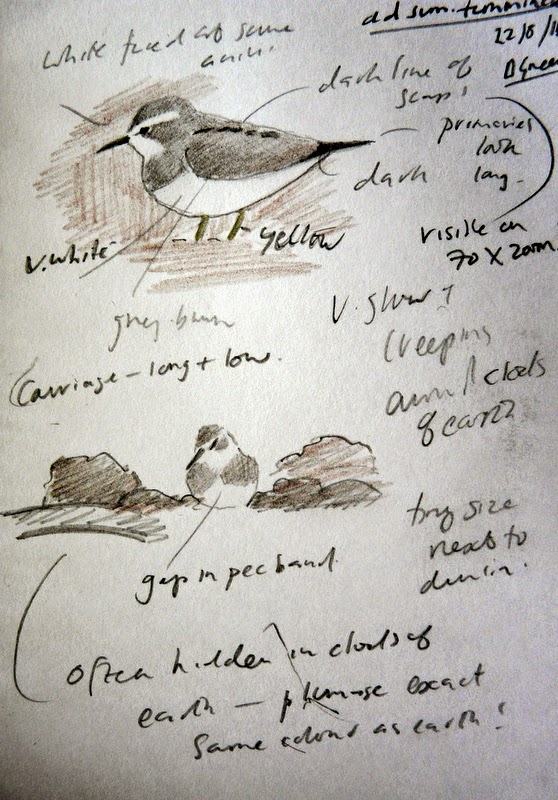 ad sum. temminck
22/8/
white faced at some
dark line of
scaps!
primaries
look
long.
dark
visible on
70 X zoom
v. white
yellow
grey brown
Carriage - long + low.
V. slow +
creeping
clods
of earth
tiny size
next to
dunlin.
gap in pec band
often hidden in clods of
earth - plumage exact
same colour as earth!